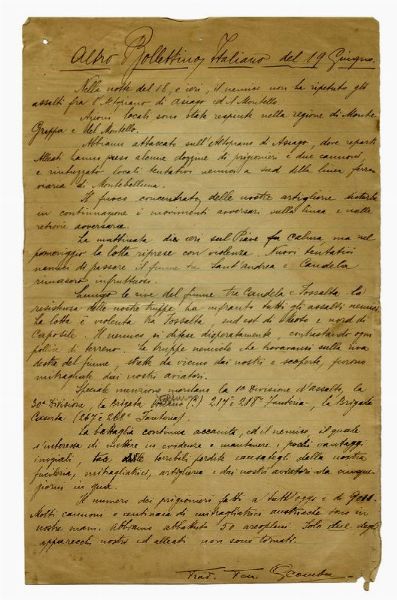 Altro Bollettino Italiano del 19 Giugno.
Nella notte del 18, e ieri, il nemico non ha ripetuto gli
assalti fra l'Altopiano di Asiago ed il Montello.
Azioni locali sono state respinte nella regione di Monte
Grappa e del Montello.
Abbiamo attaccato sull'Altopiano di Asiago, dove reparti
Alleati hanno preso alcune dozzine di prigionieri e due cannoni
e rintuzzato locali tentativi nemici a sud della linea ferro
viaria di Montebelluna.
Il fuoco concentrato delle nostre artiglierie
in continuazione i movimenti avversari sulla linea e nelle
retrovie avversarie.
La mattinata di ieri sul Piave fu calma, ma nel
pomeriggio la lotta riprese con violenza. Nuovi tentativi
nemici di passare il fiume tra Sant'Andrea e Candelu
rimasero infruttuosi.
Lungo le rive del fiume tra Candelu e Fossalta la
resistenza delle nostre truppe, ha infranto tutti gli assalti nemici
La lotta è violenta tra Fossalta, sud est di e nord di
Capo Sile. Il nemico si difese disperatamente, contrastando ogni
pollice di terreno. Le truppe nemiche che trovavansi sulla riva
destra del fiume, state da vicino dai nostri e scoperte, furono
mitragliate dai nostri aviatori.
Speciale menzione meritano la 1a Divisione d'assalto, la
30a Divisione, la Brigata (?) 217a 218a Fanteria, la Brigata
Caserta (267a 268a Fanteria).
La battaglia continua accanita, ed il nemico, il quale
s'interessa di mettere in evidenza e mantenere i pochi vantaggi
terribili perdite causategli dalla nostra
fucileria, mitragliatrici, artiglieria e dai nostri aviatori da cinque
giorni in qua.
Il numero dei prigionieri fatti a tutt'oggi è di
Molti cannoni e centinaia di mitragliatrici austriache sono in
nostre mani. Abbiamo abbattuto 50 aeroplani. Solo due degli
apparecchi nostri ed alleati non sono tornati.
Trad. Ten.